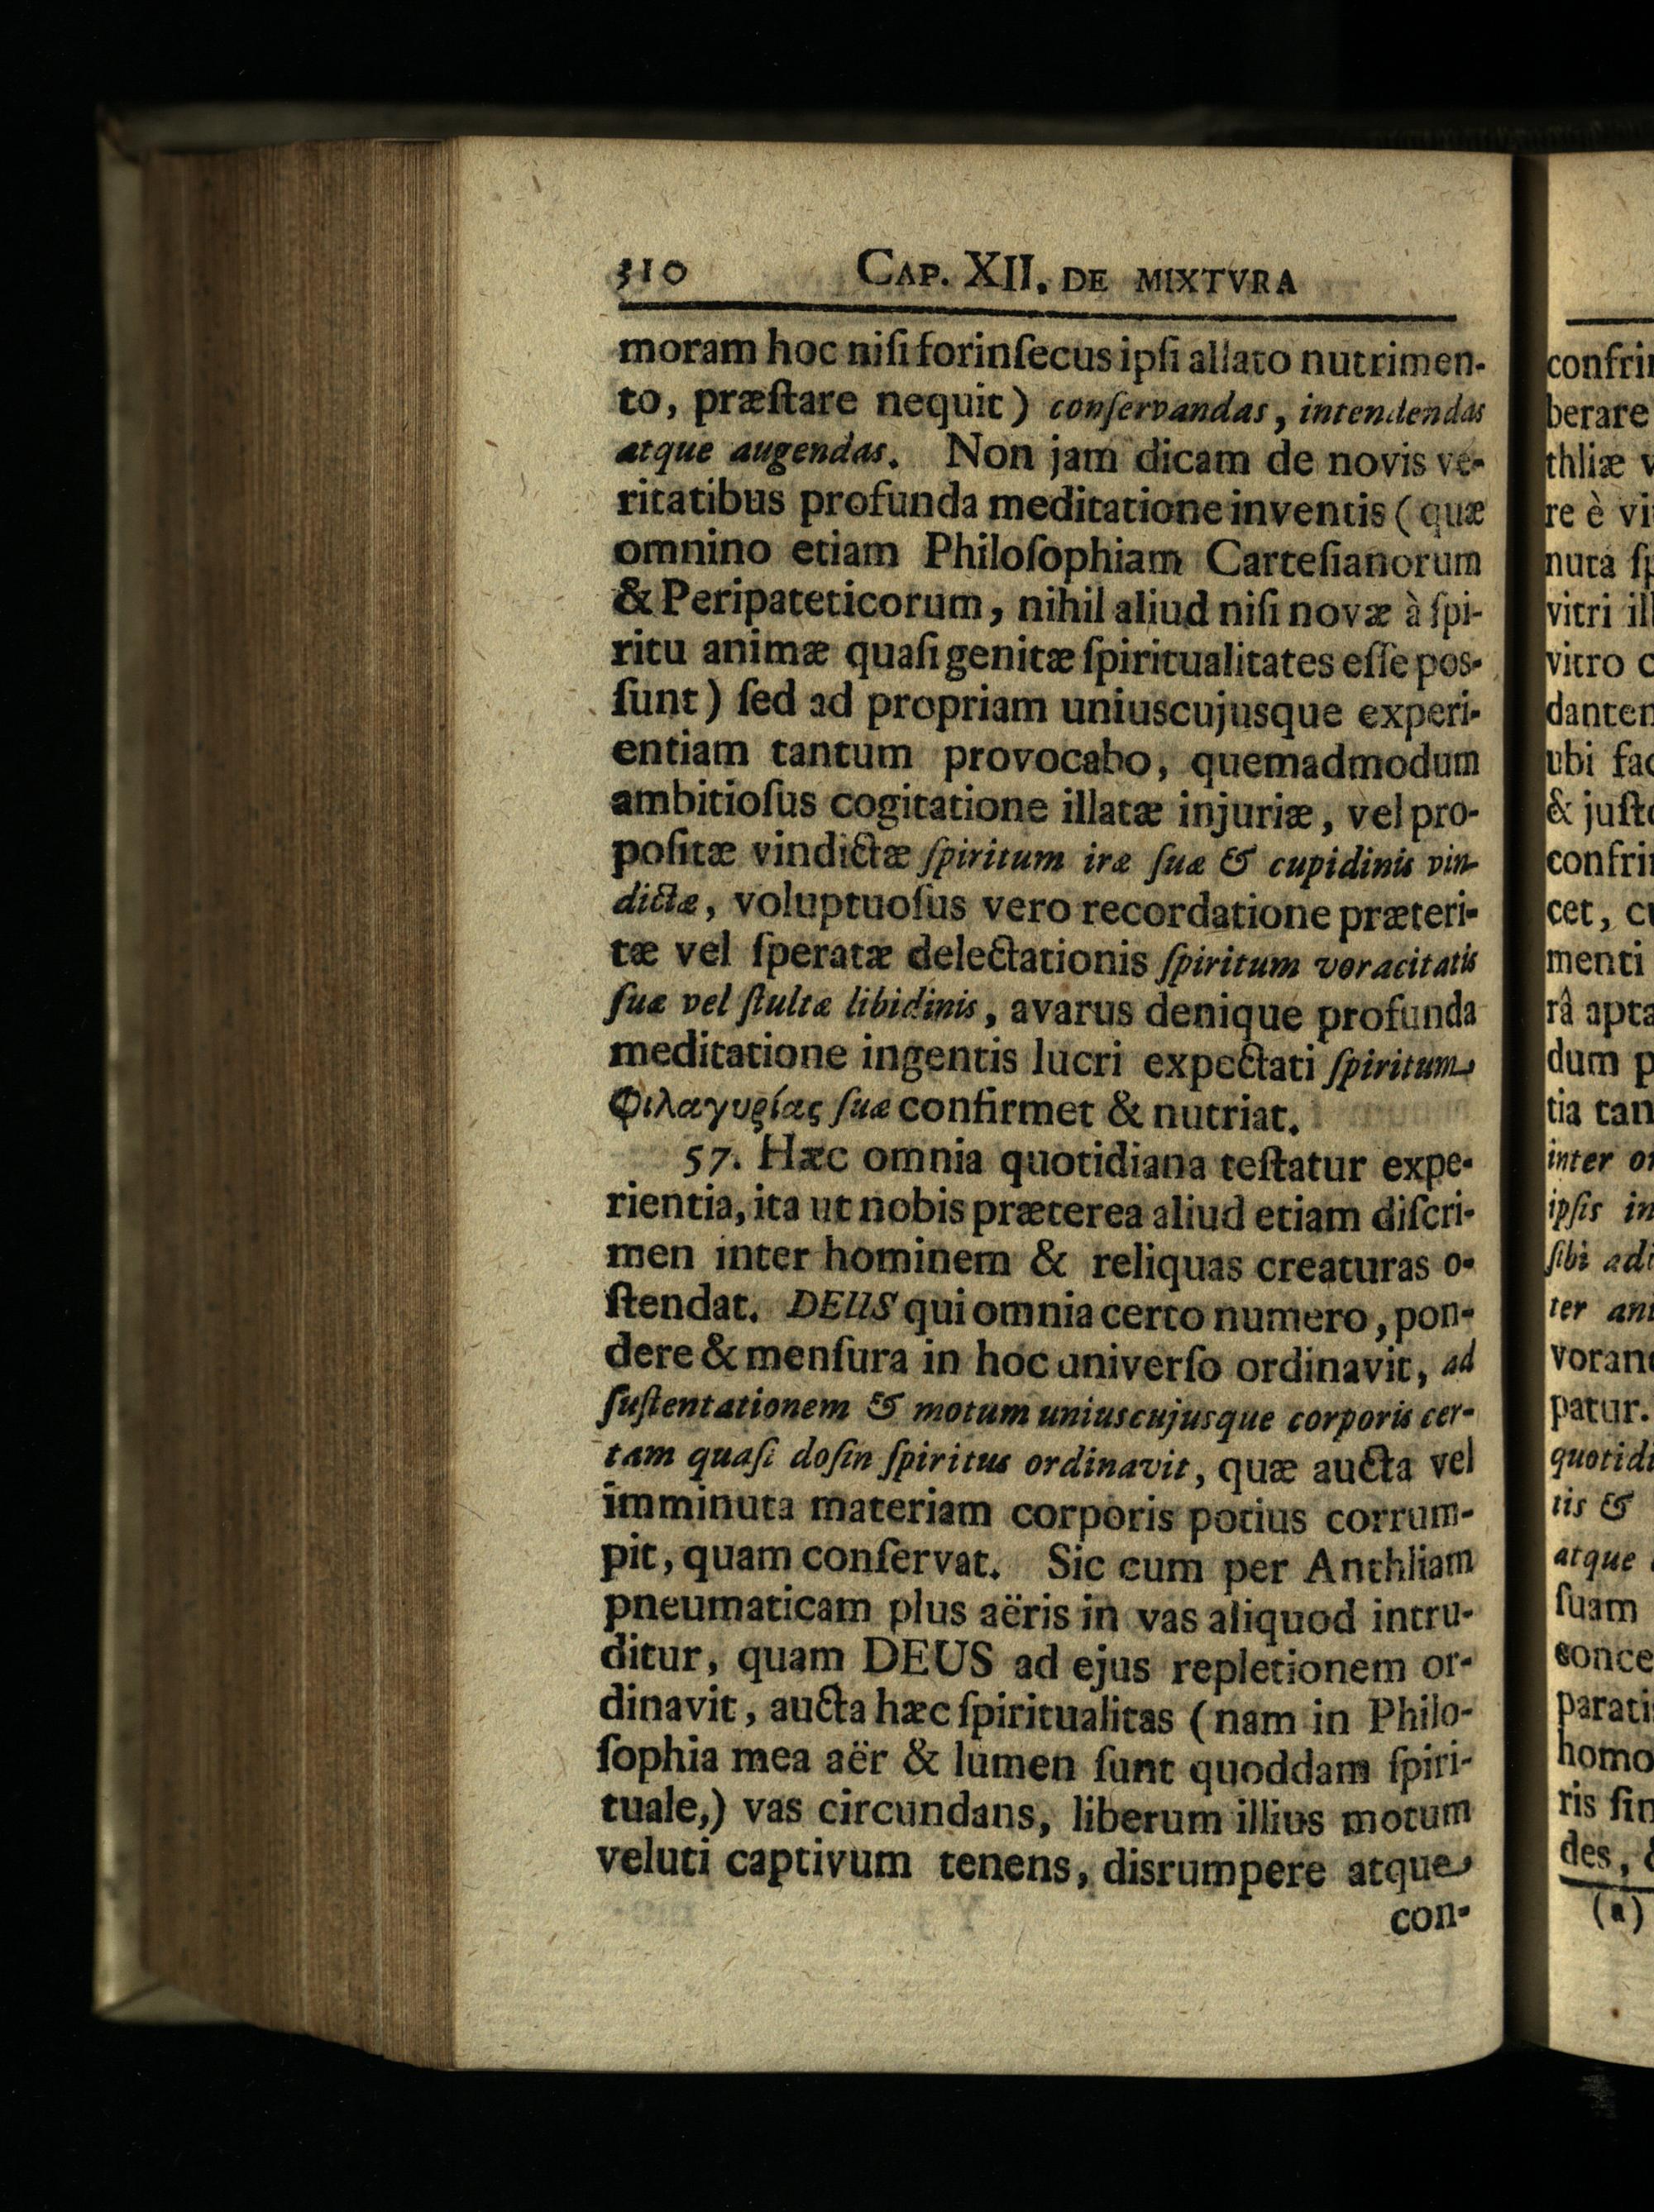 310 CAP. XII. DE MIXTVRA
moram hoc niſi forinſecus ipſi allato nutrimen-
to, præſtare nequit) conſervandas, intendendas
atque augendas. Non jam dicam de novis ve-
ritatibus profunda meditatione inventis (quæ
omnino etiam Philoſophiam Carteſianorum
& Peripateticorum, nihil aliud niſi novæ à ſpi-
ritu animæ quaſi genitæ ſpiritualitates eſſe pos-
ſunt) ſed ad propriam uniuscujusque experi-
entiam tantum provocabo, quemadmodum
ambitioſus cogitatione illatæ injuriæ, vel pro-
poſitæ vindictæ ſpiritum iræ ſuæ & cupidinis vin-
dictæ, voluptuoſus vero recordatione præteri-
tæ vel ſperatæ delectationis ſpiritum voracitatis
ſuæ vel ſtultæ libidinis, avarus denique profunda
meditatione ingentis lucri expectati ſpiritum
Φιλαγυρίας ſuæ confirmet & nutriat.
57. Hæc omnia quotidiana teſtatur expe-
rientia, ita ut nobis præterea aliud etiam diſcri-
men inter hominem & reliquas creaturas o-
ſtendat. DEUS qui omnia certo numero, pon-
dere & menſura in hoc univerſo ordinavit, ad
ſuſtentationem & motum uniuscujusque corporis cer-
tam quaſi doſin ſpiritus ordinavit, quæ aucta vel
imminuta materiam corporis potius corrum-
pit, quam conſervat. Sic cum per Anthliam
pneumaticam plus aëris in vas aliquod intru-
ditur, quam DEUS ad ejus repletionem or-
dinavit, aucta hæc ſpiritualitas (nam in Philo-
ſophia mea aër & lumen ſunt quoddam ſpiri-
tuale,) vas circundans, liberum illius motum
veluti captivum tenens, disrumpere atque
con-
confri
berare
thliæ v
re è vi
nuta ſp
vitri ill
vitro c
danten
ubi fac
& juſto
confri
cet, cu
menti
râ apta
dum p
tia tan
inter o
ipſis in
ſibi adi
ter ani
voran
patur.
quotidi
tis &
atque
ſuam
conce
parati
homo
ris ſin
des, &
(a)